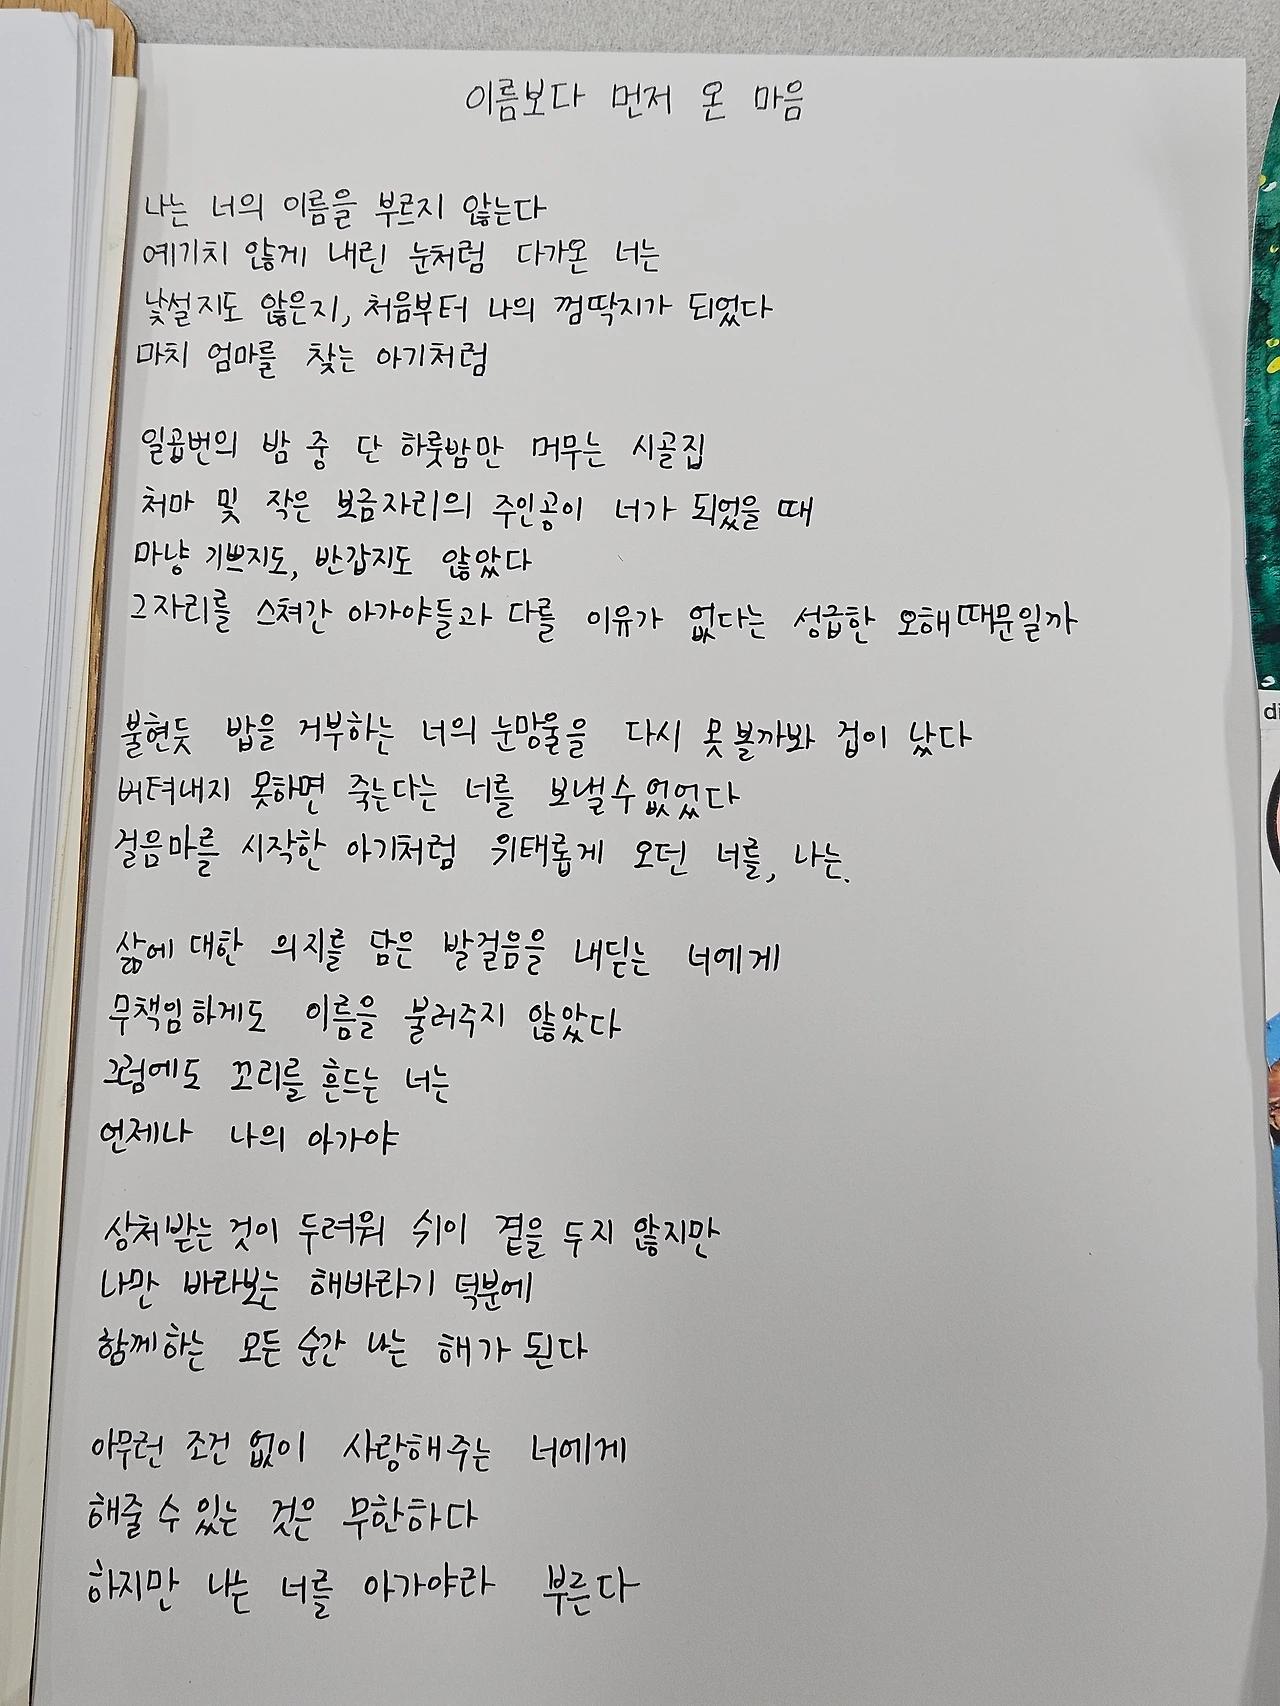 이름보다 먼저 온 마음
나는 너의 이름을 부르지 않는다
예기치 않게 내린 눈처럼 다가온 너는
낯설지도 않은지, 처음부터 나의 껌딱지가 되었다
마치 엄마를 찾는 아기처럼
일곱번의 밤 중 단 하룻밤만 머무는 시골집
처마 및 작은 보금자리의 주인공이 너가 되었을 때
마냥 기쁘지도, 반갑지도 않았다
그자리를 스쳐간 아가야들과 다를 이유가 없다는 성급한 오해때문일까
불현듯 밥을 거부하는 너의 눈망울을 다시 못 볼까봐 겁이 났다
버텨내지 못하면 죽는다는 너를 보낼수없었다
걸음마를 시작한 아기처럼 위태롭게 오던 너를, 나는.
삶에 대한 의지를 담은 발걸음을 내딛는 너에게
무책임하게도 이름을 불러주지 않았다
그럼에도 꼬리를 흔드는 너는
언제나 나의 아가야
상처받는 것이 두려워 쉬이 곁을 두지 않지만
나만 바라보는 해바라기 덕분에
함께하는 모든 순간 나는 해가 된다
아무런 조건 없이 사랑해주는 너에게
해줄 수 있는 것은 무한하다
하지만 나는 너를 아가야라 부른다
di